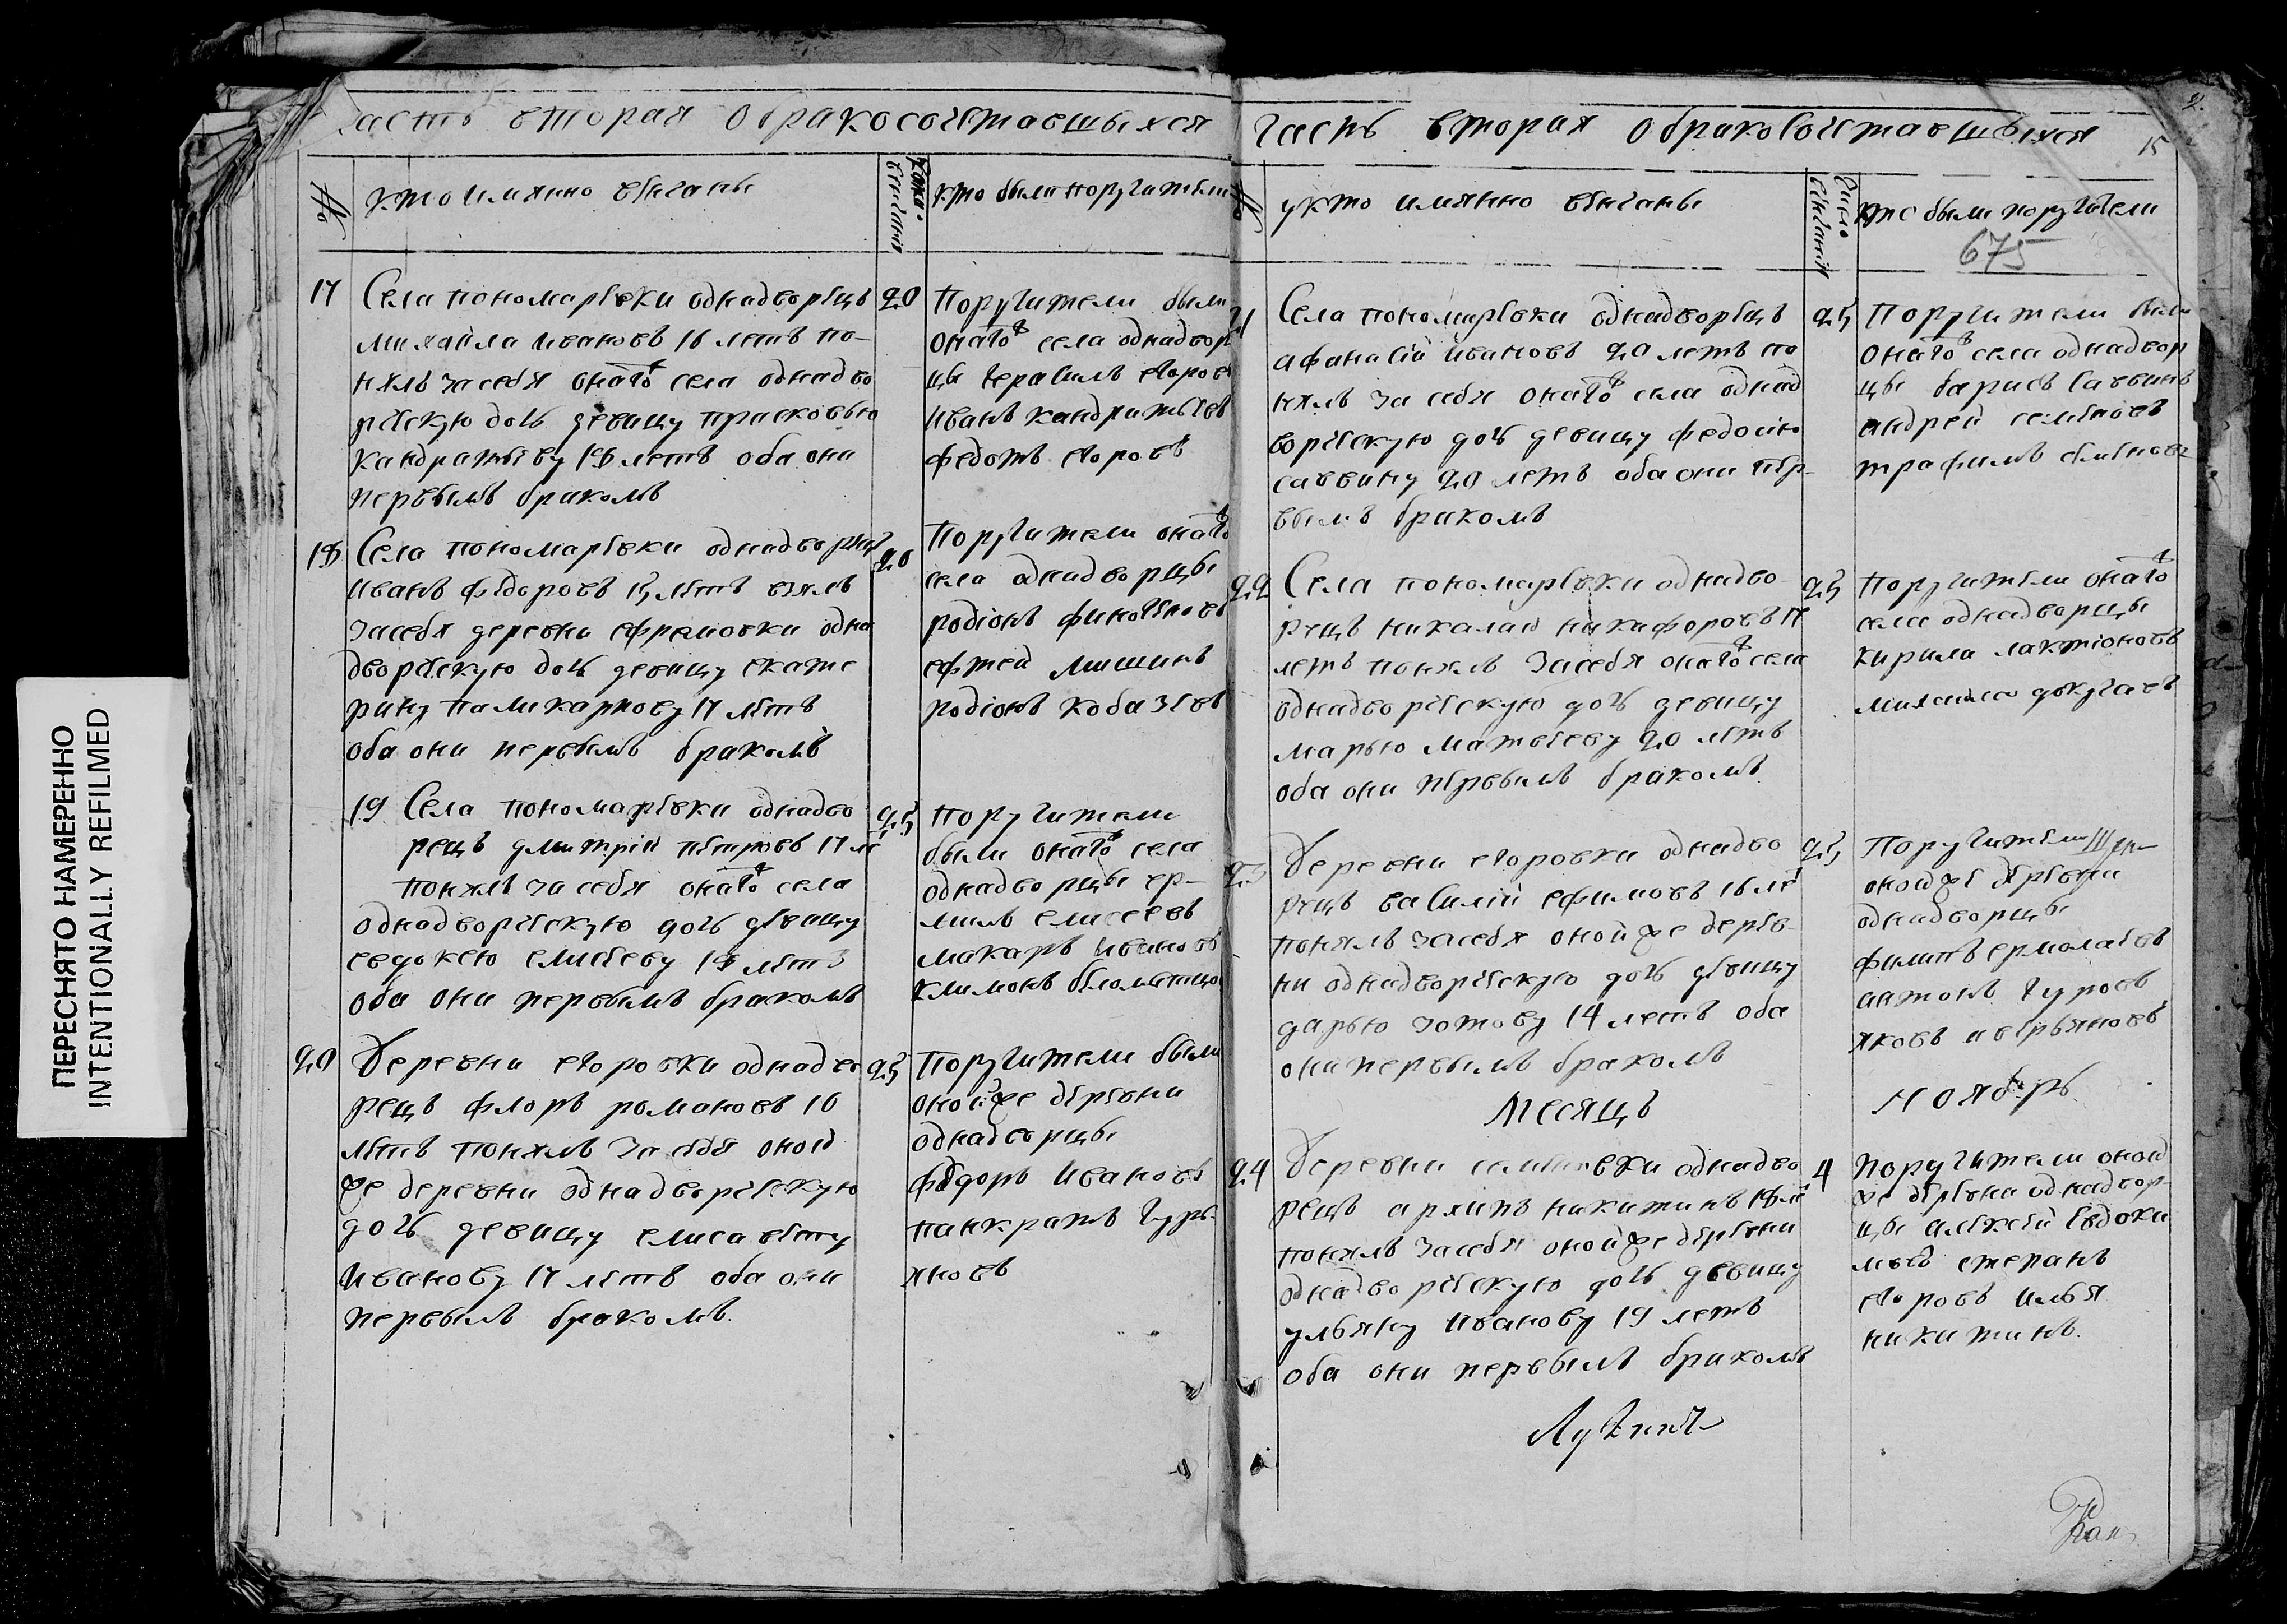 ПЕРЕСНЯТО НАМЕРЕННО
INTENTIONALLY REFILMED
часть вторая обракосочетавшыхся
№
кто имянно венчаны
венчания
кто были поручители
17
Села пономаревки однадворецъ
михайла ивановъ 16 летъ по-
нялъ засебя онаго села однадво
рческую дочь девицу прасковью
кандратьеву 18 летъ оба они
первымъ бракомъ
20
Поручители были
онаго села однадвор
цы герасимъ егоровъ
иванъ кандратьевъ
федотъ егоровъ
18
Села пономаревки однадворец
иванъ федоровъ 15 летъ взялъ
засебя деревни ефремовки одна
дворческую дочь девицу екате
рину паликарпову 17 летъ
оба они первымъ бракомъ
20
Поручители онаго
села однадворцы
родіонъ финогеновъ
ефтей мишинъ
родіонъ кобазевъ
19
Села пономаревки однадво
рецъ дмитрій петровъ 17 ле
понялъ засебя онаго села
однадворческую дочь девицу
евдокею елисееву 18 летъ
оба они первымъ бракомъ
25
поручители
были онаго села
однадворцы ер-
милъ елисеевъ
макаръ ивановъ
климонъ
20
Деревни егоровки однадво
рецъ флоръ романовъ 16
летъ понялъ засебя оной
же деревни однадворческую
дочь девицу елисавету
иванову 17 летъ оба они
первымъ бракомъ.
25
поручители были
оной же деревни
однадворцы
федоръ ивановъ
панкратъ гурь
яновъ
часть вторая обракосочетавшыхся
15
№
кто имянно венчаны
число венчания
кто были поручители
675
21
Села пономаревки однадворецъ
афанасій ивановъ 20 летъ по
нялъ за себя онаго села однад
ворческую дочь девицу федосію
саввину 20 летъ оба они пер-
вымъ бракомъ
25
Поручители были
онаго села однадвор
цы барисъ саввинъ
андрей семеновъ
трафимъ семеновъ
22
Села пономаревки однадво
рецъ никалай никифоровъ 17
летъ понялъ засебя онаго села
однадворческую дочь девицу
марью матвееву 20 летъ
оба они первымъ бракомъ.
25
поручители онаго
села однадворцы
кирила лактіоновъ
михаила докучаевъ
23
Деревни егоровки однадво
рецъ василій ефимовъ 16 ле
понялъ засебя оной же дерев-
ни однадворческую дочь девицу
дарью зотову 14 летъ оба
они первымъ бракомъ
25
Поручители
оной же деревни
однадворцы
филипъ ермолаевъ
антонъ гуровъ
яковъ аверьяновъ
Месяцъ
Ноябрь
24
Деревни семеновки однадво
рецъ архипъ никитинъ 18 ле
понялъ засебя оной же деревни
однадворческую дочь девицу
ульяну иванову 19 летъ
оба они первымъ бракомъ
4
поручители оной
же деревни однадвор-
цы алексей евдоки
мовъ степанъ
егоровъ илья
никитинъ.